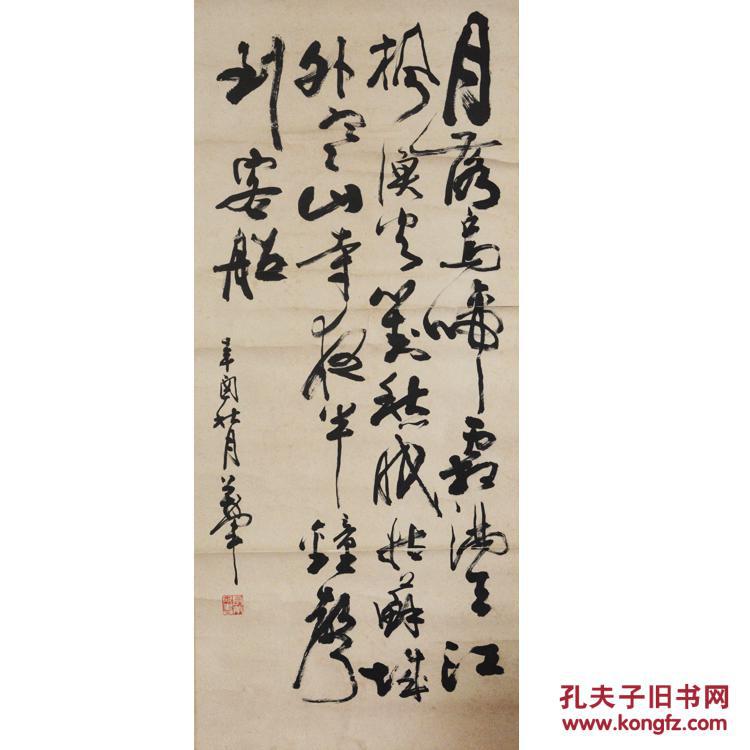 月落烏啼霜滿天江
楓漁火對愁眠姑蘇城
外寒山寺夜半鐘聲
到客船
辛酉秋月
孔夫子旧书网
www.kongfz.com